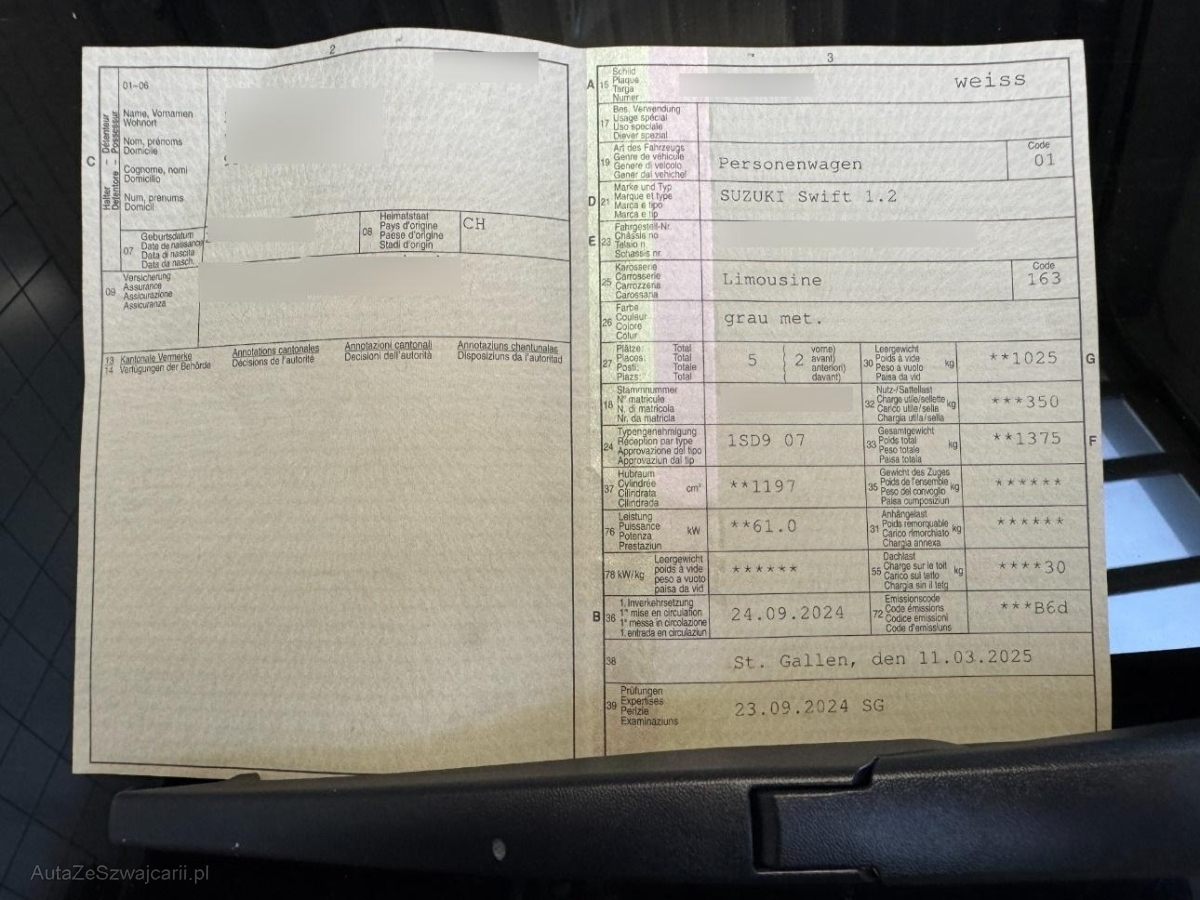 2
01-06
C
Halter - Détenteur
Detentore - Possessur
Name, Vornamen
Wohnort
Nom, prénoms
Domicile
Cognome, nomi
Domicilio
Num, prenums
Domicil
07
Geburtsdatum
Data de naissance
Data di nascita
Data da nasch.
08
Heimatstaat
Pays d'origine
Paese d'origine
Stadi d'origin
CH
09
Versicherung
Assurance
Assicurazione
Assicuranza
13
14
Kantonale Vermerke
Verfügungen der Behörde
Annotations cantonales
Décisions de l'autorité
Annotazioni cantonali
Decisioni dell'autorità
Annotaziuns chantunalas
Disposiziuns da l'autoritad
3
A
15
Schild
Plaque
Targa
Numer
weiss
17
Bes. Verwendung
Usage spécial
Uso speciale
Diever spezial
19
Art des Fahrzeugs
Genre de véhicule
Genere di veicolo
Gener dal vehichel
Personenwagen
Code
01
D
21
Marke und Typ
Marque et type
Marca e tipo
Marca e tip
SUZUKI Swift 1.2
E
23
Fahrgestell-Nr.
Châssis no
Telaio n.
Schassis nr.
25
Karosserie
Carrosserie
Carrozzeria
Carossaria
Limousine
Code
163
26
Farbe
Couleur
Colore
Colur
grau met.
27
Plätze: Total
Places: Total
Posti: Totale
Plazs: Total
5
2
vorne)
avant)
anteriori)
davant)
30
Leergewicht
Poids à vide
Peso a vuoto
Paisa da vid
kg
**1025
G
18
Stammnummer
N° matricule
N. di matricola
Nr. da matricla
32
Nutz-/Sattellast
Charge utile/sellette
Carico utile/sella
Chargia utila/sella
kg
***350
24
Typengenehmigung
Réception par type
Approvazione del tipo
Approvaziun dal tip
1SD9 07
33
Gesamtgewicht
Poids total
Peso totale
Paisa totala
kg
**1375
F
37
Hubraum
Cylindrée
Cilindrata
Cilindrada
cm³
**1197
35
Gewicht des Zuges
Poids de l'ensemble
Peso del convoglio
Paisa cumposiziun
kg
******
76
Leistung
Puissance
Potenza
Prestaziun
kW
**61.0
31
Anhängelast
Poids remorquable
Carico rimorchiato
Chargia annexa
kg
******
78 kW/kg
Leergewicht
poids à vide
peso a vuoto
paisa da vid
******
55
Dachlast
Charge sur le toit
Carico sul tetto
Chargia sin il tetg
kg
****30
B
36
1. Inverkehrsetzung
1re mise en circulation
1a messa in circolazione
1. entrada en circulaziun
24.09.2024
72
Emissionscode
Code émissions
Codice emissioni
Code d'emissiuns
***B6d
38
St. Gallen, den 11.03.2025
39
Prüfungen
Expertises
Perizie
Examinaziuns
23.09.2024 SG
AutaZeSzwajcarii.pl